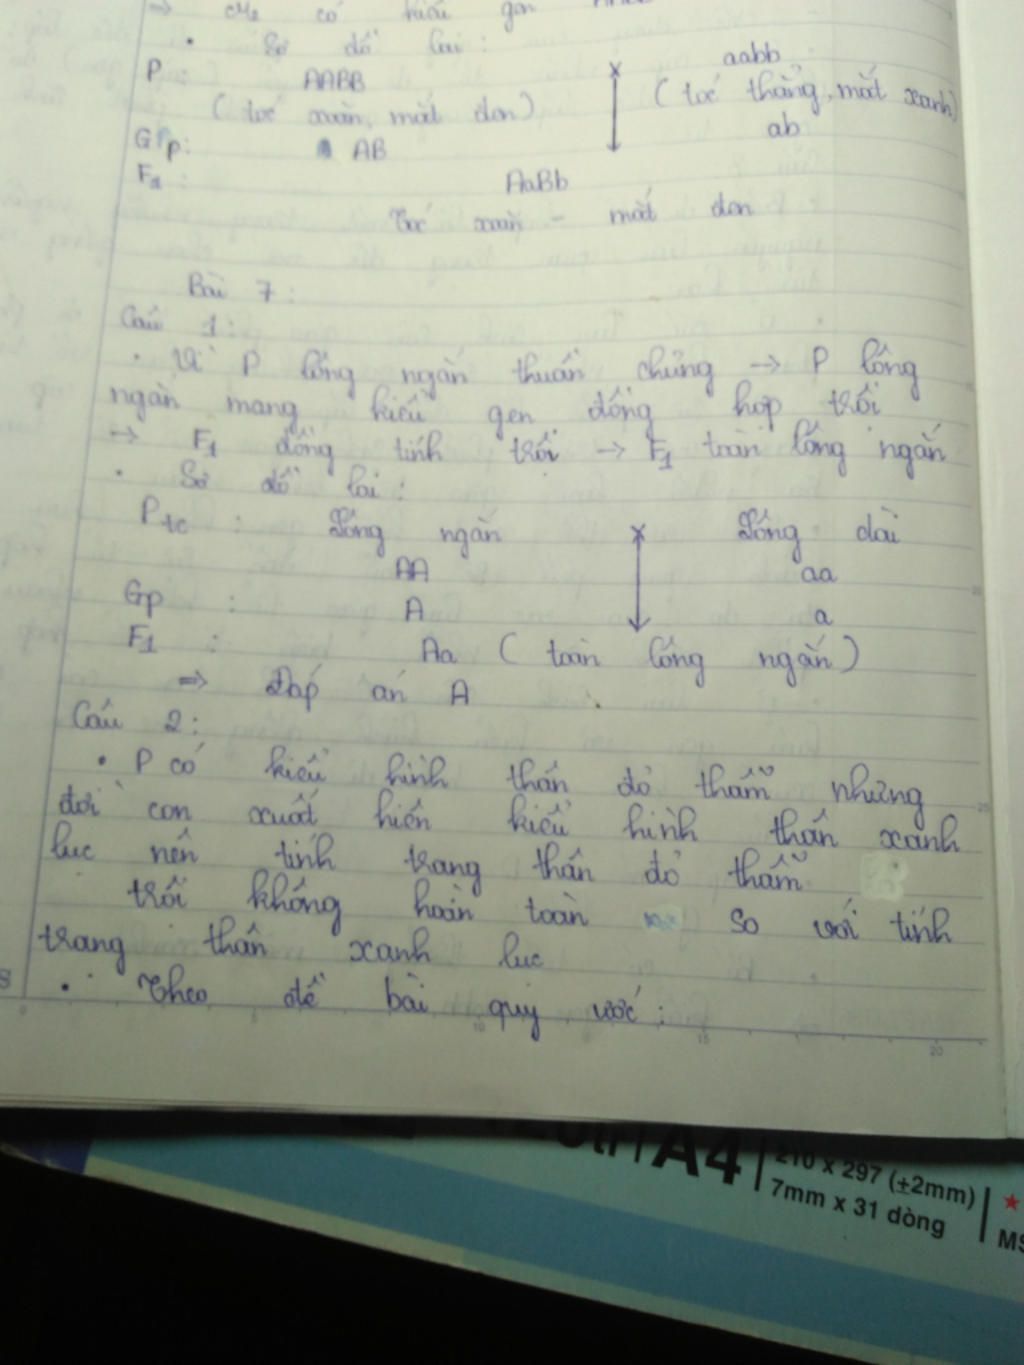 → Mẹ có kiểu gen
• Sơ đồ lai :
P : AABB × aabb
( tóc xoăn, mắt đen ) ( tóc thẳng, mắt xanh )
GP : AB ab
F1 : AaBb
Tóc xoăn - mắt đen
Bài 7 :
Câu 1 :
• Vì P lông ngắn thuần chủng → P lông
ngắn mang kiểu gen đồng hợp trội
→ F1 đồng tính trội → F1 toàn lông ngắn
• Sơ đồ lai :
Ptc : Lông ngắn × Lông dài
AA aa
Gp : A a
F1 : Aa ( toàn lông ngắn )
⇒ Đáp án A
Câu 2 :
• P có kiểu hình thân đỏ thẫm nhưng
đời con xuất hiện kiểu hình thân xanh
lục nên tính trạng thân đỏ thẫm
trội không hoàn toàn so với tính
trạng thân xanh lục
• Theo đề bài quy ước :
0 5 10 15 20
A4 210 x 297 (±2mm)
7mm x 31 dòng